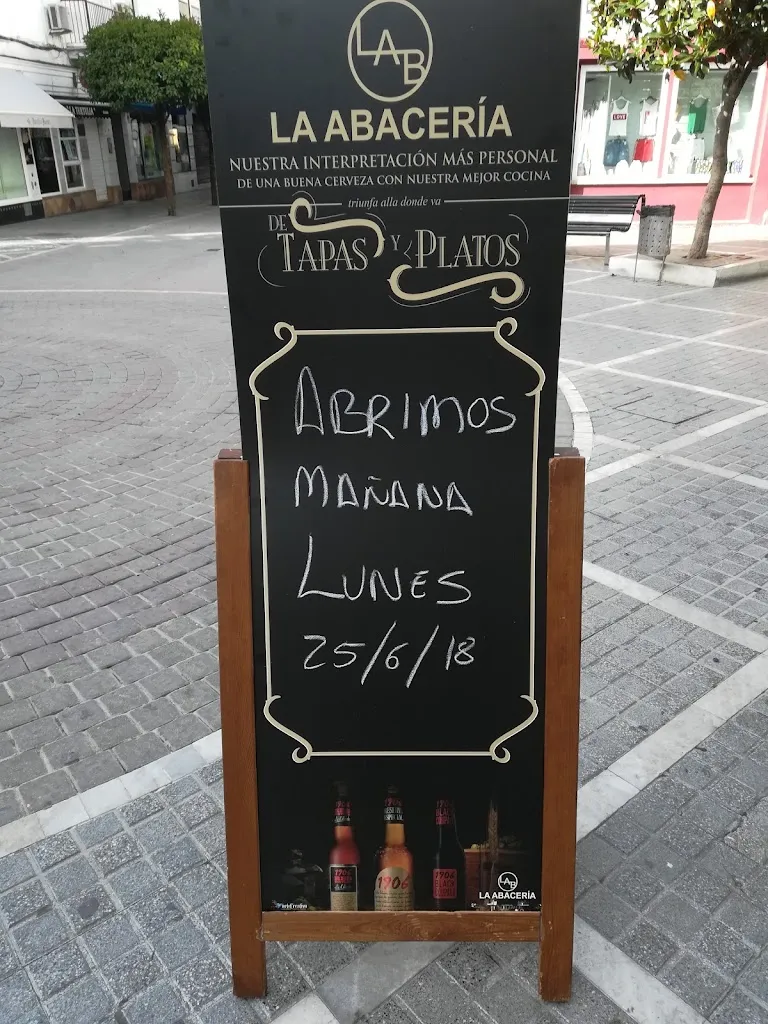 LAB
LA ABACERÍA
NUESTRA INTERPRETACIÓN MÁS PERSONAL
DE UNA BUENA CERVEZA CON NUESTRA MEJOR COCINA
triunfa alla donde va
DE TAPAS Y PLATOS
ABRIMOS
MAÑANA
LUNES
25/6/18
1906
1906
1906
BLACK
LAB
LA ABACERÍA